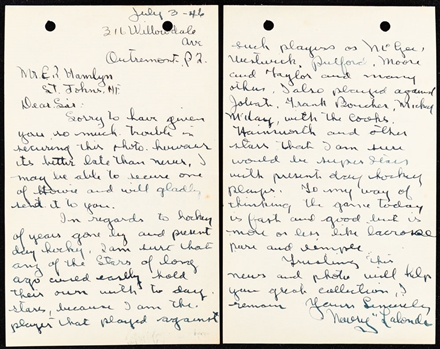 July 3-46
311 Willowdale
Ave
Outremont, P.Q.
Mr. E.J. Hamlyn
St. Johns, Nf
Dear Sir:
Sorry to have given
you so much trouble in
securing this photo. however
its better late than never, I
may be able to secure one
of Howie and will gladly
send it to you.
In regards to hockey
of years gone by and present
day hockey I am sure that
any of the stars of long
ago could easily hold
their own with to day
stars, because I am the
player that played against
such players as McGee,
Westwick, Pulford, Moore
and Taylor and many
others. I also played against
Joliat, Frank Boucher, Mickey
McKay, with the Cooks,
Hainsworth and other
stars that I am sure
would be super stars
with present day hockey
player. To my way of
thinking the game today
is fast and good but is
more or less like lacrosse
pure and simple.
Trusting this
news and photo will help
your great collection, I
remain Yours Sincerely
"Newsy" Lalonde